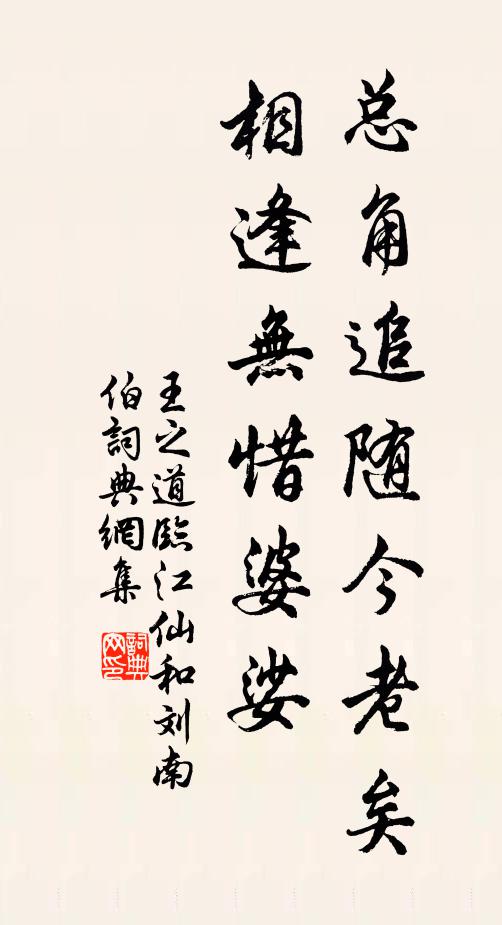 总角追随今老矣
相逢無惜婆娑
王之道臨江仙和刘南
伯詞典網集
詞典
网印